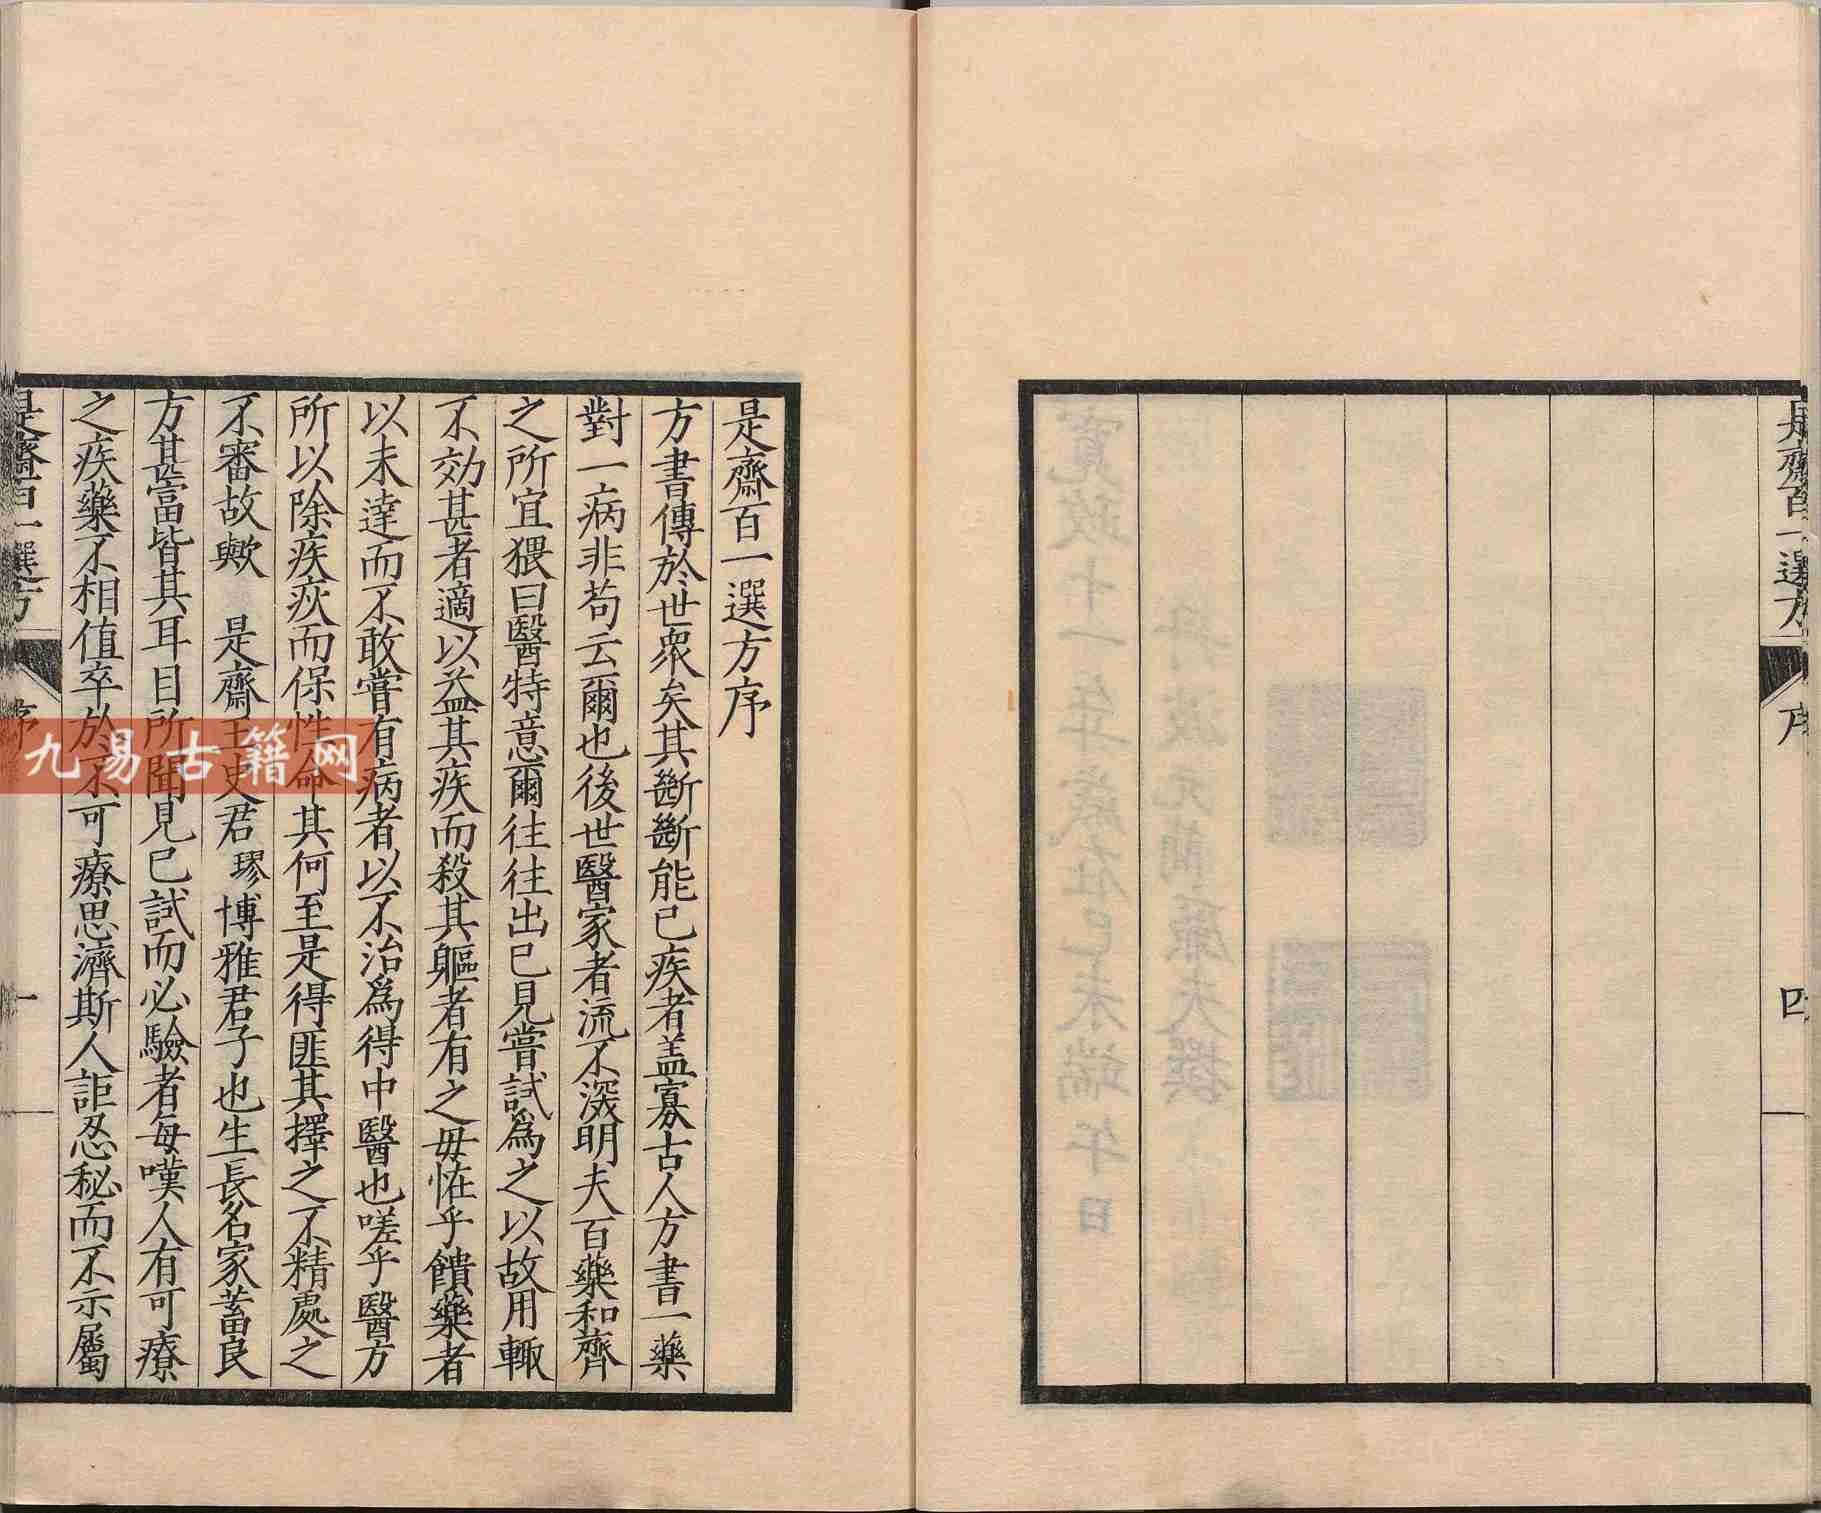 是齋百一選方
序
四
寬政十一年歲在己未端午日
丹波元簡廉夫撰
是齋百一選方序
方書傳於世衆矣其斷斷能已疾者蓋寡古人方書一藥
對一病非苟云爾也後世醫家者流不深明夫百藥和齊
之所宜猥曰醫特意爾往往出已見嘗試爲之以故用輙
不効甚者適以益其疾而殺其軀者有之毋恠乎饋藥者
以未達而不敢嘗有病者以不治爲得中醫也嗟乎醫方
所以除疾疢而保性命其何至是得匪其擇之不精處之
不審故歟　是齋王史君璆博雅君子也生長名家蓄良
方甚富皆其耳目所聞見已試而必驗者每嘆人有可療
之疾藥不相值卒於不可療思濟斯人詎忍秘而不示屬
是齋百一選方
序
一
九易古籍网